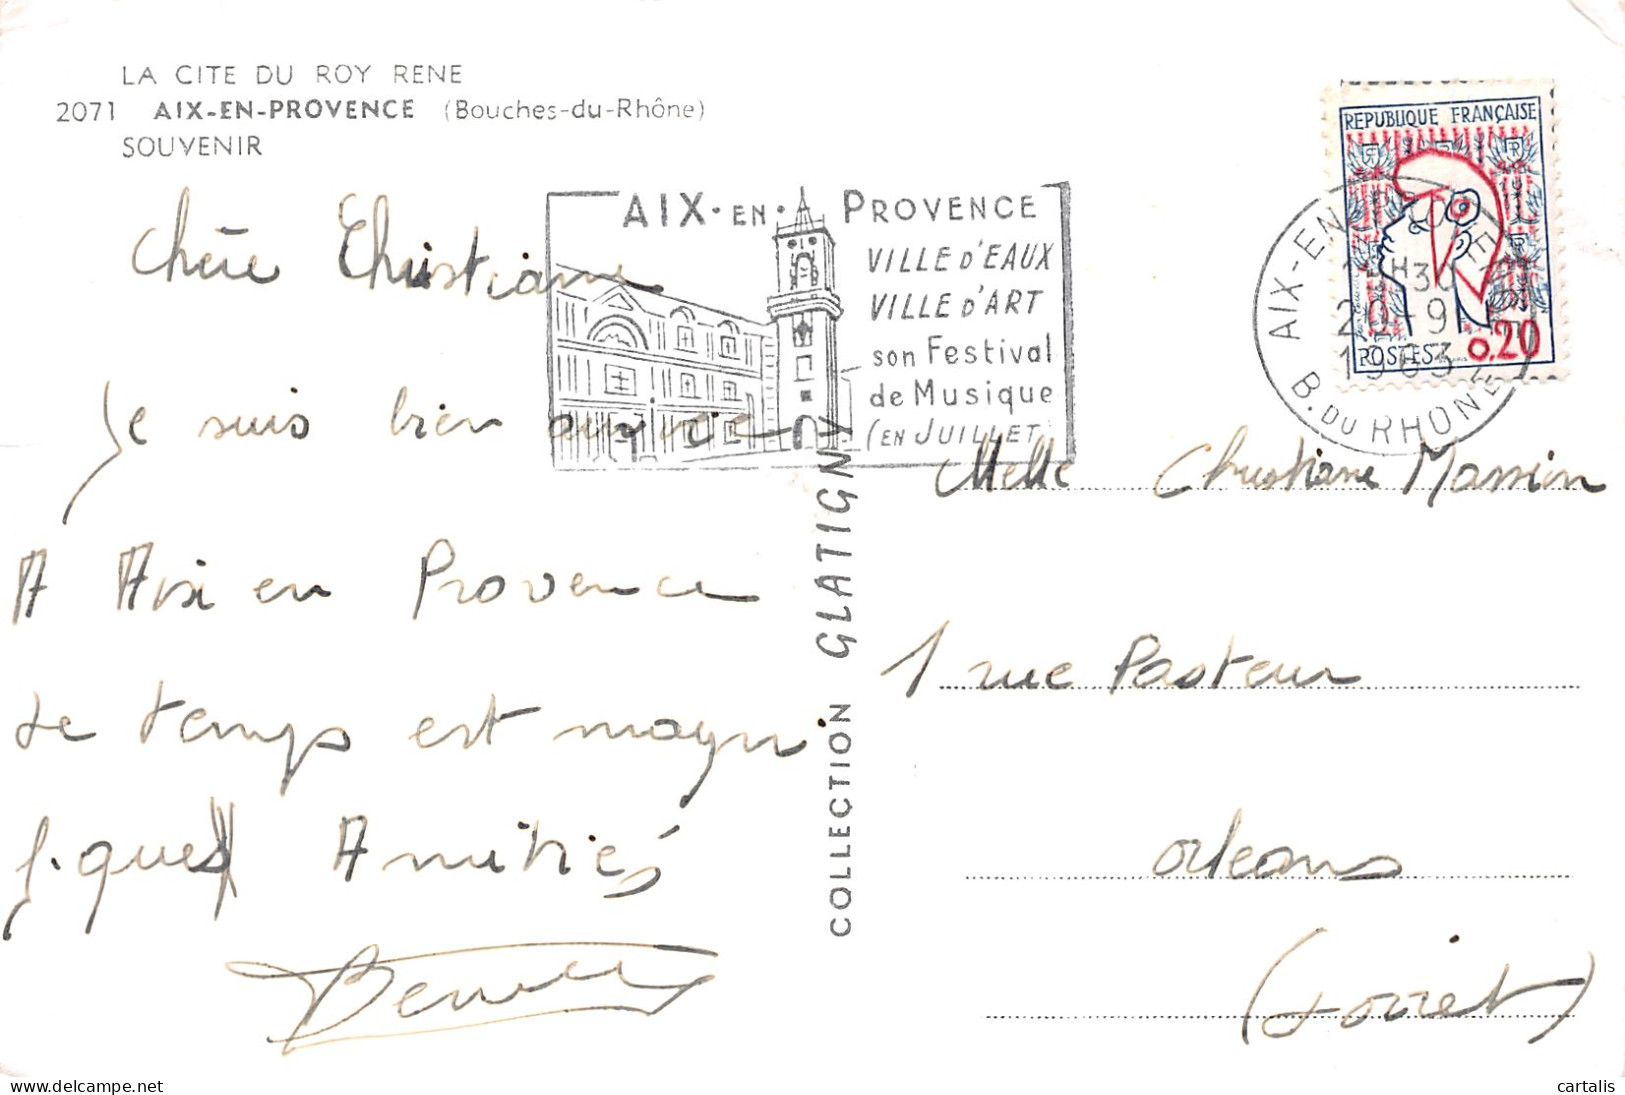 LA CITE DU ROY RENE
2071 AIX-EN-PROVENCE (Bouches-du-Rhône)
SOUVENIR
Chère Christiane
Je suis bien arrivée
A Aix en Provence
Le temps est magni
fique Amitiés
AIX·EN·PROVENCE
VILLE D'EAUX
VILLE D'ART
son Festival
de Musique
(EN JUILLET)
COLLECTION GLATIGNY
REPUBLIQUE FRANÇAISE
POSTES 0,20
AIX-EN-PROVENCE
H30
20-9
1963
B. DU RHONE
Melle Christiane Massion
1 rue Pasteur
Orleans
(Loiret)
delcampe.net
cartalis